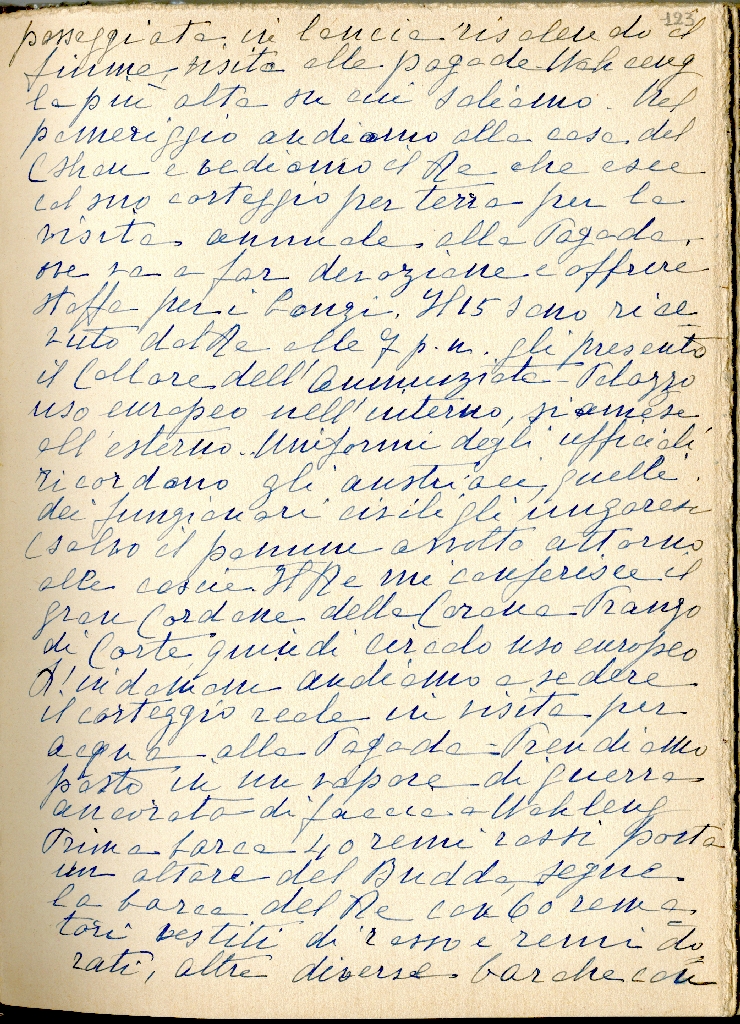 123
passeggiata in lancia risalendo il
fiume, visita alle pagode Wahceng
la più alta su cui saliamo. Nel
pomeriggio andiamo alla casa del
e vediamo il Re che esce
col suo corteggio per terra per la
visita annuale alla Pagoda,
ove va a far devozione e offrire
stoffa per i bonzi. Il 15 sono rice
vuto dal Re alle 7 p.m. gli presento
il Collare dell'Annunziata - Palazzo
uso europeo nell'interno, siamese
all'esterno. Uniformi degli ufficiali
ricordano gli austriaci, quelle
dei funzionari civili gli ungaresi
(salvo il panum avvolto attorno
alle coscie. Il Re mi conferisce il
gran Cordone della Corona - Pranzo
di Corte quindi circolo uso europeo
L'indomani andiamo a vedere
il corteggio reale in visita per
acqua alla Pagoda - Prendiamo
posto in un vapore di guerra
ancorato di faccia a Wahleng
Prima barca 40 remi rossi porta
un altare del Budda, segue
la barca del Re con 60 rema=
tori vestiti di rosso e remi do
rati, altre diverse barche con